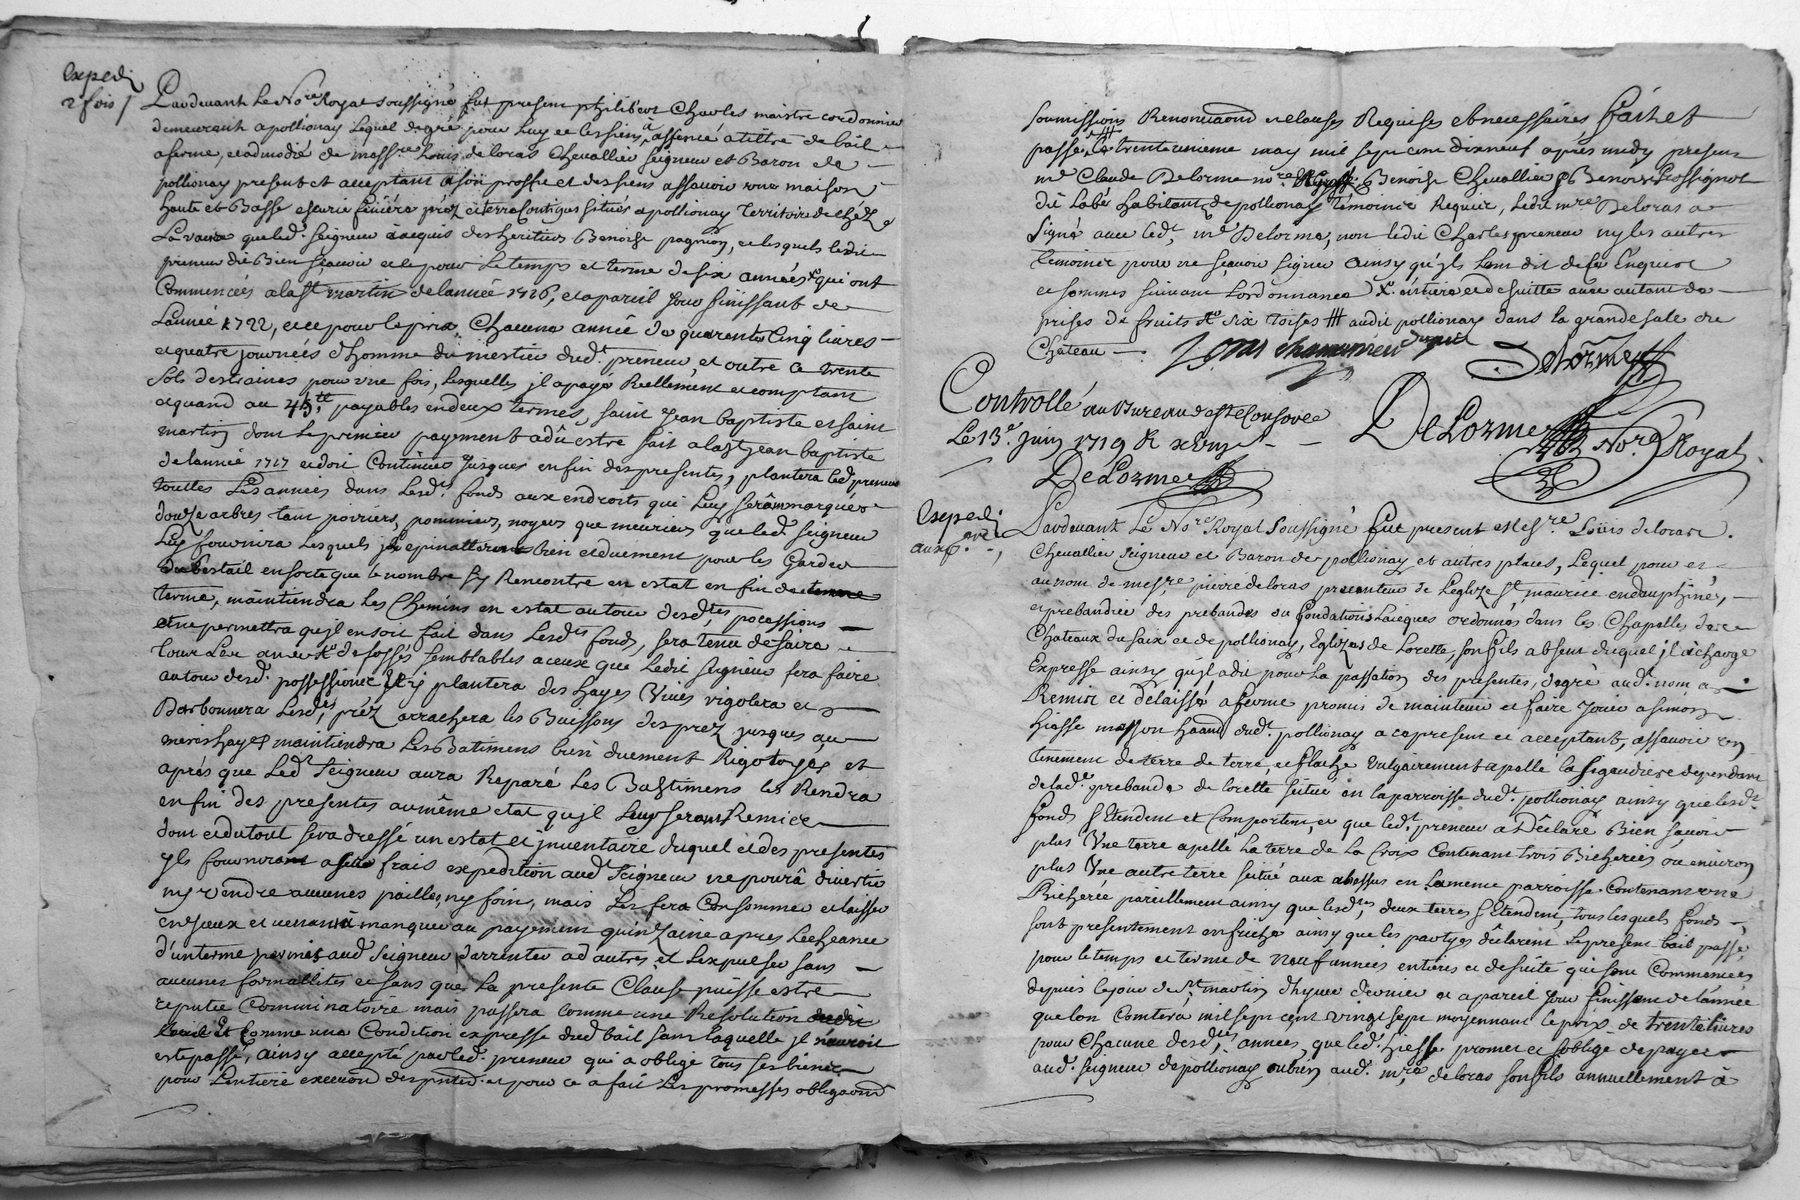 Expedi
2 fois
Pardevant Le No.re Royal soussigné fut present philibert Charles maistre cordonnier
demeurant a pollionay Lequel degré pour Luy et les siens a assencé a tiltre de bail
a ferme, et admodié de mess.re Louis de loras Chevallier Seigneur et Baron de
pollionay present et acceptant a son proffit et des siens assavoir une maison
haute et Basse escurie feniére préz et terre Contigus situés a pollionay Territoire de
La que led. Seigneur a acquis des heritiers Benoist pagnon, et lesquels ledit
preneur dit Bien sçavoir et ce pour le temps et terme de six années qui ont
Commencées a la s.t martin de lannée 1716, et a pareil jour finissant de
Lannée 1722, et ce pour le prix Chacune année de quarente Cinq livres
et quatre journées d'homme du mestier dud.t preneur, et outre ce trente
sols destraines pour une fois, Lesquelles jl a payé Reellement et comptant
et quand au 45.tt payables en deux termes, saint jean baptiste et saint
martin dont le premier payement a dû estre fait a la s.t jean baptiste
de lannée 1717 et doit Continuer jusques en fin des presentes, plantera led. preneur
touttes Les années dans lesd.ts fonds aux endroits qui Luy seront marqués
douze arbres, tant poiriers, pommiers, noyers que meuriers que led. Seigneur
Luy fournira Lesquels jl epinattera bien et duement pour les Garder
du Bestail en sorte que le nombre s'y Rencontre en estat en fin de
terme, maintiendra Les Chemins en estat autour desd.tes pocessions
et ne permettra qu'jl en soit fait dans Lesd.ts fonds, sera tenu de faire
tour Les ans de fosses semblables a ceux que Ledit Seigneur fera faire
autour desd. possessions et y plantera des hayes Vives vigolera et
Barbonnera Lesd.ts préz arrachera les Buissons des prez jusques au
meres hayes maintiendra Les Batimens bien duement Rigotoyés et
aprés que Led.t Seigneur aura Reparé Les Bastimens les Rendra
en fin des presentes au même etat qu'jl Luy seront Remise
dont et du tout sera dressé un estat et jnventaire duquel et des presentes
jls fourniront a frais expedition aud.t Seigneur ne pourâ divertir
ny vendre aucunes pailles, ny foin, mais Les fera Consommer et laisser
en jceux et venant à manquer au payement quinzaine apres Lecheance
d'un terme permis aud.t Seigneur darrenter ad autres et Lexpulser sans
aucunes formallités et sans que La presente Clause puisse estre
reputée Comminatoire mais passera comme une Resolution
Comme une Condition expresse dud.t bail sans laquelle jl n'auroit
esté passé, ainsy accepté par led. preneur qui a obligé tous ses biens
pour Lentiere execution des pntes. et pour ce a fait Les promesses obligaons
soumissions Renonciaons et clauses Requises et necessaires fait et
passé, le trente unieme may mil sept cent dix neuf aprés midy present
m.e Claude Delorme no.re Benoist Chevallier & Benoist Rossignol
dit Labé habitants de pollionay temoins Requis, ledit m.re Deloras a
signé avec led.t m.e Delorme, non ledit Charles preneur ny les autres
temoins pour ne sçavoir signer ainsy qu'jls l'ont dit de ce Enquis
et sommés suivant Lordonnance entiere et de suitte avec autant de
prises de fruits six toises audit pollionay dans la grande sale du
Château
Delorme
Controllé au Bureau de
Le 13.e juin 1719 R
DeLorme
DeLorme No.re Royal
Expedi
aux p.
Pardevant Le No.re Royal Soussigné fut present Mes.re Louis deloras
Chevallier Seigneur et Baron de pollionay et autres places, Lequel pour et
au nom de mess.re pierre de loras precenteur de Leglize s.t maurice en dauphiné,
et prebandier des prebandes ou fondations Laiques ordonnés dans les Chapelles des
Chateaux du faix et de pollionay, Eglizes de Lorette, son fils absent duquel jl a charge
Expresse ainsy qu'jl a dit pour La passation des presentes, degré aud.t nom a
Remis et delaissé a ferme promis de maintenir et faire jouir a simon
hiasse masson dud.t pollionay a ce present et acceptant, assavoir un
tenement de terre de terre, et flache Vulgairement apellé la figaudiere dependant
de lad.e prebande de lorette située en la parroisse dud.t pollionay ainsy que lesd.ts
fonds s'Etendent et Comportent, et que led.t preneur a Declaré Bien sçavoir
plus Une terre apellé La terre de La Croix Contenant trois Bicherées ou environ
plus Une autre terre située aux abessus en La meme parroisse Contenant une
Bicherée pareillement ainsy que lesd.tes deux terres s'Etendent, tous lesquels fonds
sont presentement en friche ainsy que les partyes déclarent Le present bail passé,
pour le temps et terme de Neuf années entieres et de suitte qui sont Commencées
depuis le jour de s.t martin d'hyver dernier et a pareil jour finissant de lannée
que lon Comterâ mil sept cent vingt sept moyennant le prix de trente livres
pour Chacune desd.tes années, que led. hiasse promet et soblige de payer
aud. Seigneur de pollionay ou bien aud. m.re de loras son fils annuellement à